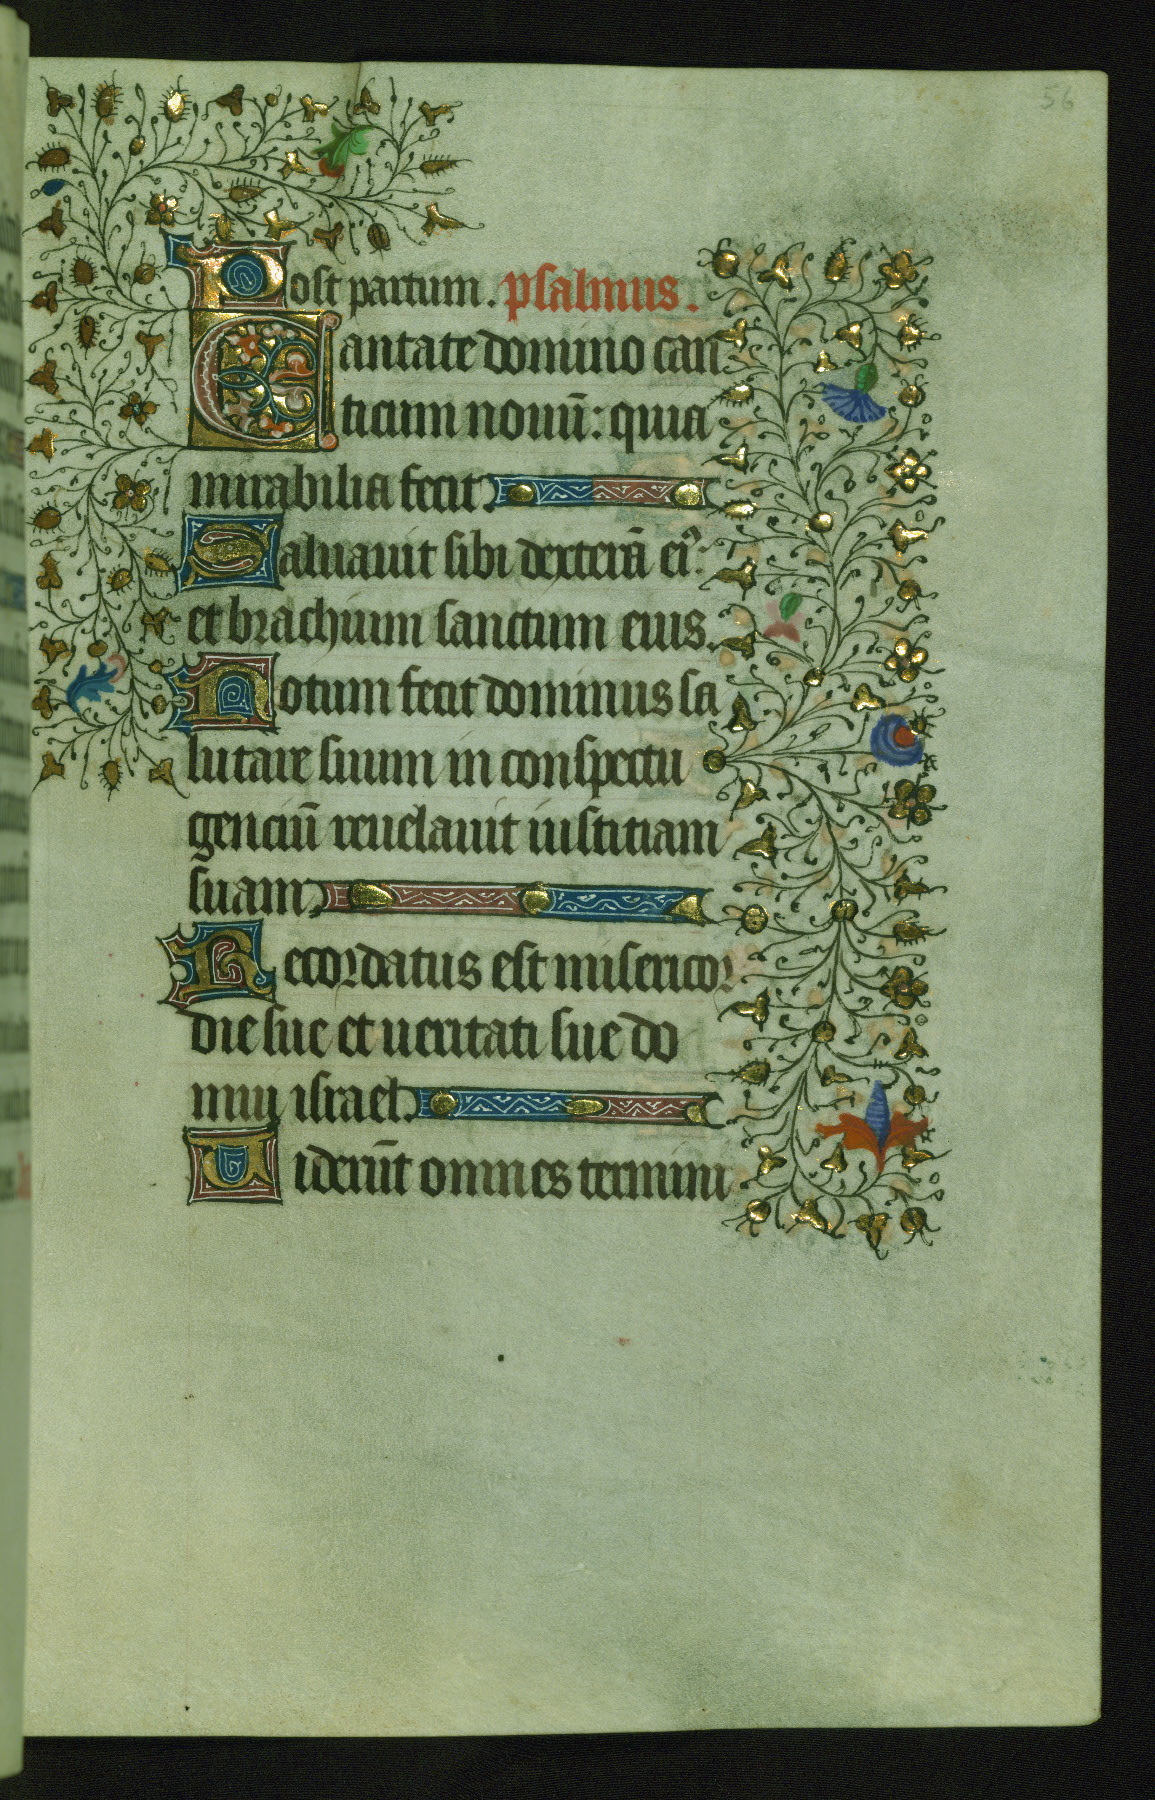 56
Post partum. psalmus.
Cantate domino can
ticum nouū: quia
mirabilia fecit
Saluauit sibi dexterā ei⁹:
et brachium sanctum eius.
Notum fecit dominus sa
lutare suum in conspectu
genciū reuelauit iustitiam
suam
Recordatus est misericor
die sue et ueritati sue do
mui israel.
Uiderūt omnes termini